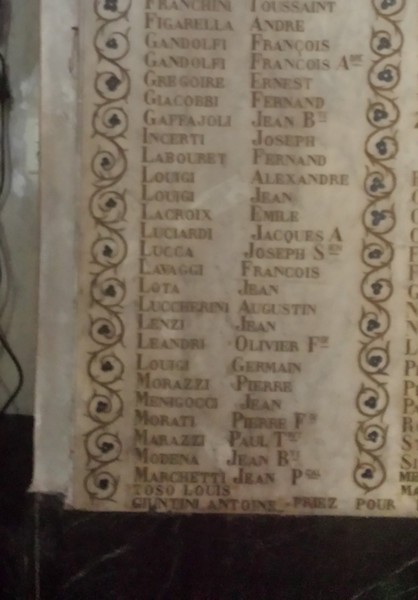 FRANCHINI TOUSSAINT
FIGARELLA ANDRE
GANDOLFI FRANÇOIS
GANDOLFI FRANCOIS A
GREGOIRE ERNEST
GIACOBBI FERNAND
GAFFAJOLI JEAN B
INCERTI JOSEPH
LABOURET FERNAND
LOUIGI ALEXANDRE
LOUIGI JEAN
LACROIX EMILE
LUCIARDI JACQUES A
LUCCA JOSEPH
LAVAGGI FRANCOIS
LOTA JEAN
LUCCHERINI AUGUSTIN
LENZI JEAN
LEANDRI OLIVIER
LOUIGI GERMAIN
MORAZZI PIERRE
MENIGOCCI JEAN
MORATI PIERRE
MARAZZI PAUL
MODENA JEAN B
MARCHETTI JEAN
TOSO LOUIS
GIUNTINI ANTOINE - PRIEZ POUR